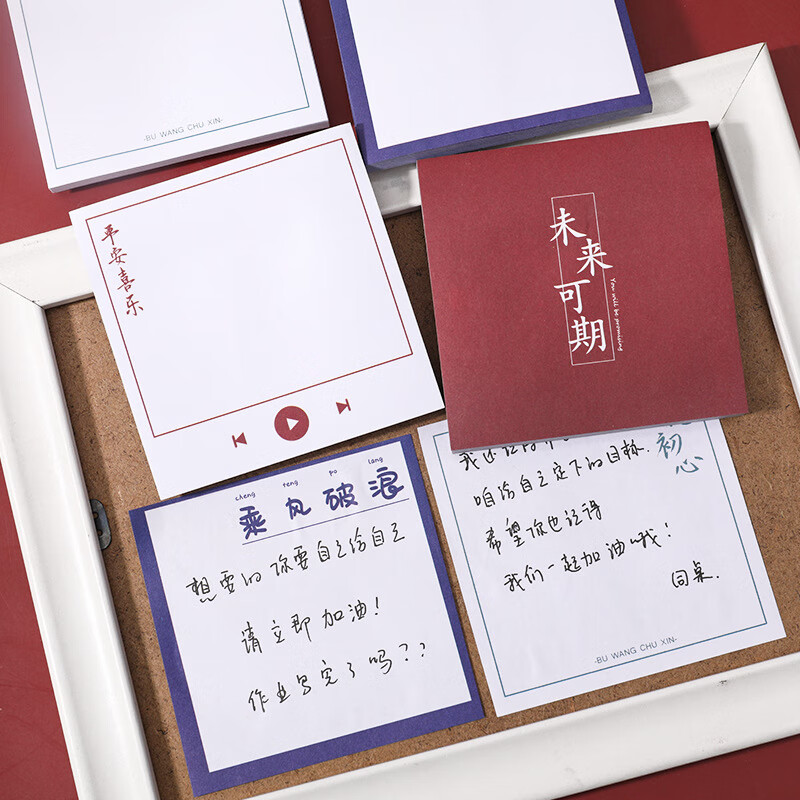 -BU WANG CHU XIN-
平安喜乐
未来可期
You will be promising
cheng feng po lang
乘风破浪
想要的你要自己给自己
请立即加油！
作业写完了吗？？
初心
咱给自己定下的目标.
希望你也记得
我们一起加油哦！
同桌.
-BU WANG CHU XIN-